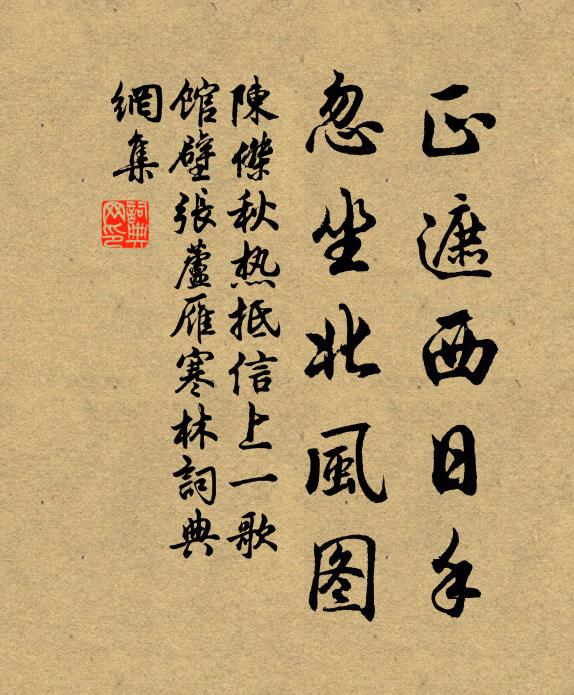 正遮西日手
忽坐北風图
陳傑秋热抵信上一歌
馆壁張蘆雁寒林詞典
網集
詞典
网印